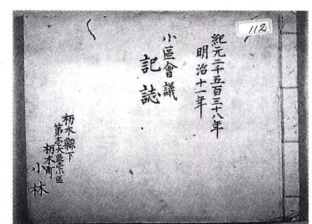 112
紀元二千五百三十八年
明治十一年
小區會議
記誌
栃木縣下
第壱大區
栃木町
小林